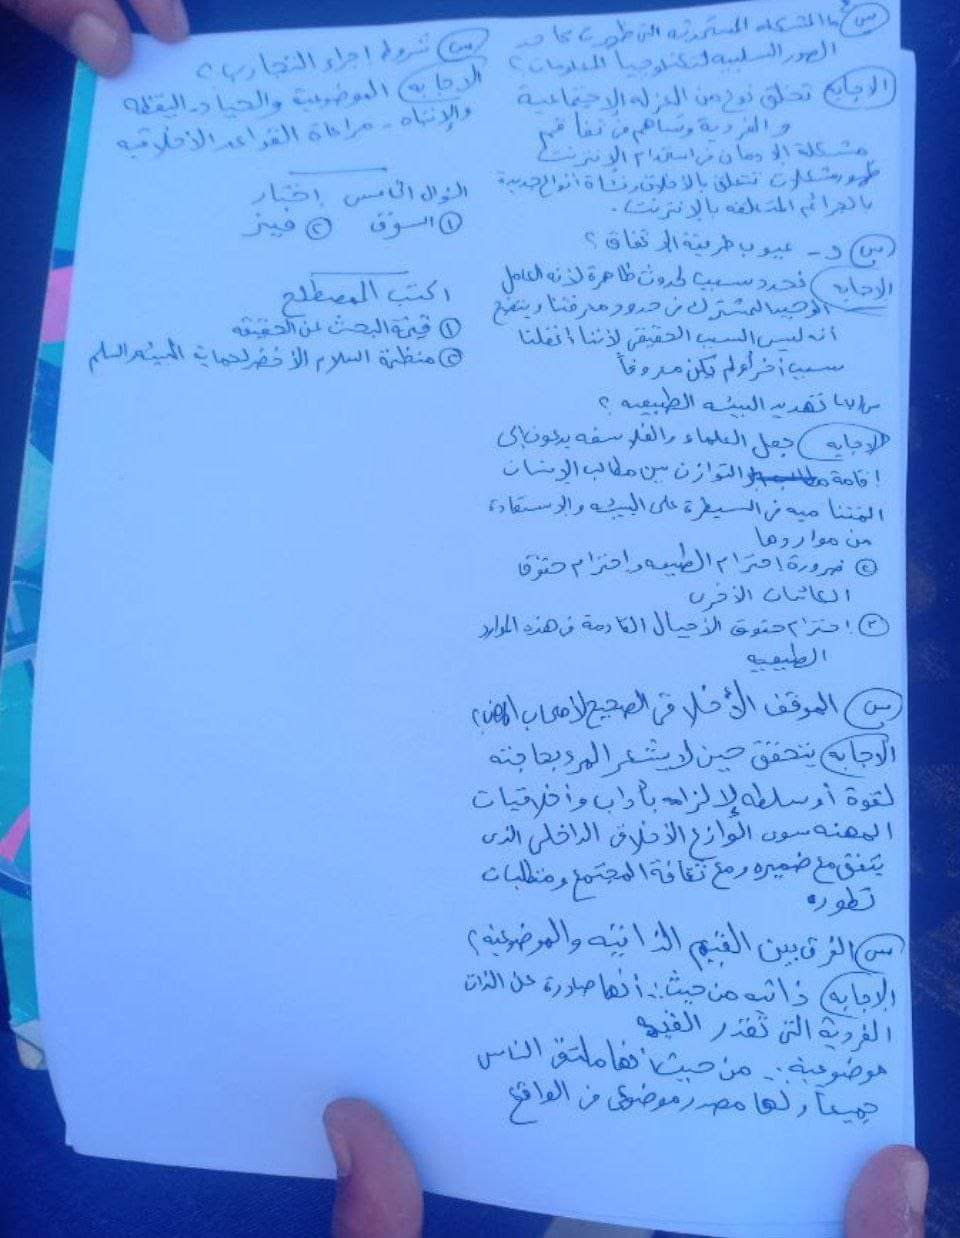 س ما المشكله المستحدثه التى ظهرت كأحد
الصور السلبيه لتكنولوجيا المعلومات؟
الاجابه تخلق نوع من العزله الإجتماعية
والفردية وتساهم فى تفاقم
مشكلة الإدمان فى استخدام الإنترنت
ظهور مشكلات تتعلق بالأخلاق ونشأة أنواع جديدة
بالجرائم المتعلقه بالإنترنت.
س د - عيوب طريقة الإتفاق؟
الاجابه نحدد سبب لحدوث ظاهرة لأنه العامل
الوحيد المشترك فى حدود معرفتنا ويتضح
أنه ليس السبب الحقيقى لأننا أغفلنا
سبب آخر أو لم يكن معروفاً
تهديد البيئه الطبيعيه؟
الاجابه جعل العلماء والفلاسفه يدعون إلى
إقامة التوازن بين مطالب الإنسان
المتناميه فى السيطرة على البيئه والإستفادة
من مواردها
② ضرورة إحترام الطبيعه وإحترام حقوق
الكائنات الأخرى
③ احترام حقوق الأجيال القادمة فى هذه الموارد
الطبيعيه
س الموقف الأخلاقى الصحيح لأصحاب المهن؟
الاجابه يتحقق حين لا يشعر المرء بحاجته
لقوة أو سلطه لإلزامه بآداب وأخلاقيات
المهنه سوى الوازع الأخلاقى الداخلى الذى
يتفق مع ضميره ومع ثقافة المجتمع ومتطلبات
تطوره
س الفرق بين القيم الذاتيه والموضوعيه؟
الإجابه ذاتيه من حيث: أنها صادرة عن الذات
الفردية التى تقدر القيمه
موضوعيه: من حيث أنها ملتقى الناس
جميعاً ولها مصدر موضوعى فى الواقع
س شروط اجراء التجارب؟
الاجابه الموضوعية والحياد - اليقظه
والإنتباه - مراعاة القواعد الأخلاقيه
السؤال الخامس إختار
① السوق ② فينز
اكتب المصطلح
① قيمة البحث عن الحقيقه
② منظمة السلام الأخضر لحماية البيئه والسلم